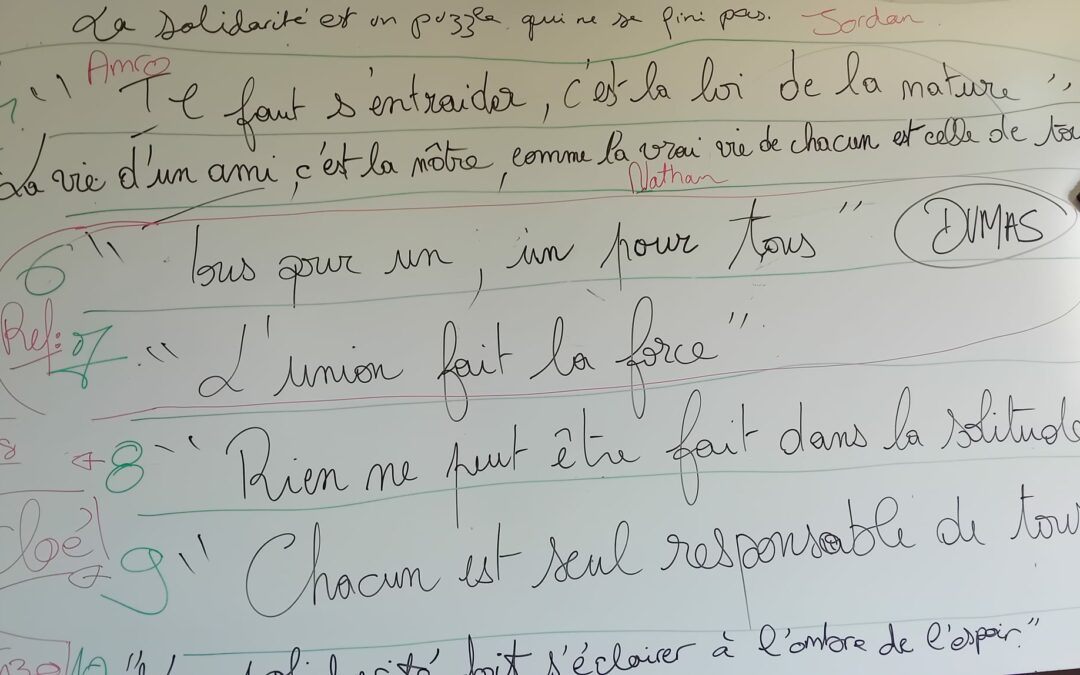 La solidarité est un puzzle qui ne se fini pas. Jordan
Amro
" Il faut s'entraider, c'est la loi de la nature "
La vie d'un ami, c'est la nôtre, comme la vrai vie de chacun est celle de
Nathan
6 " Tous pour un, un pour tous " DUMAS
Ref: 7 " L'union fait la force "
8 " Rien ne peut être fait dans la solitude
9 " Chacun est seul responsable de tous
10 " solidarité doit s'éclairer à l'ombre de l'espoir."